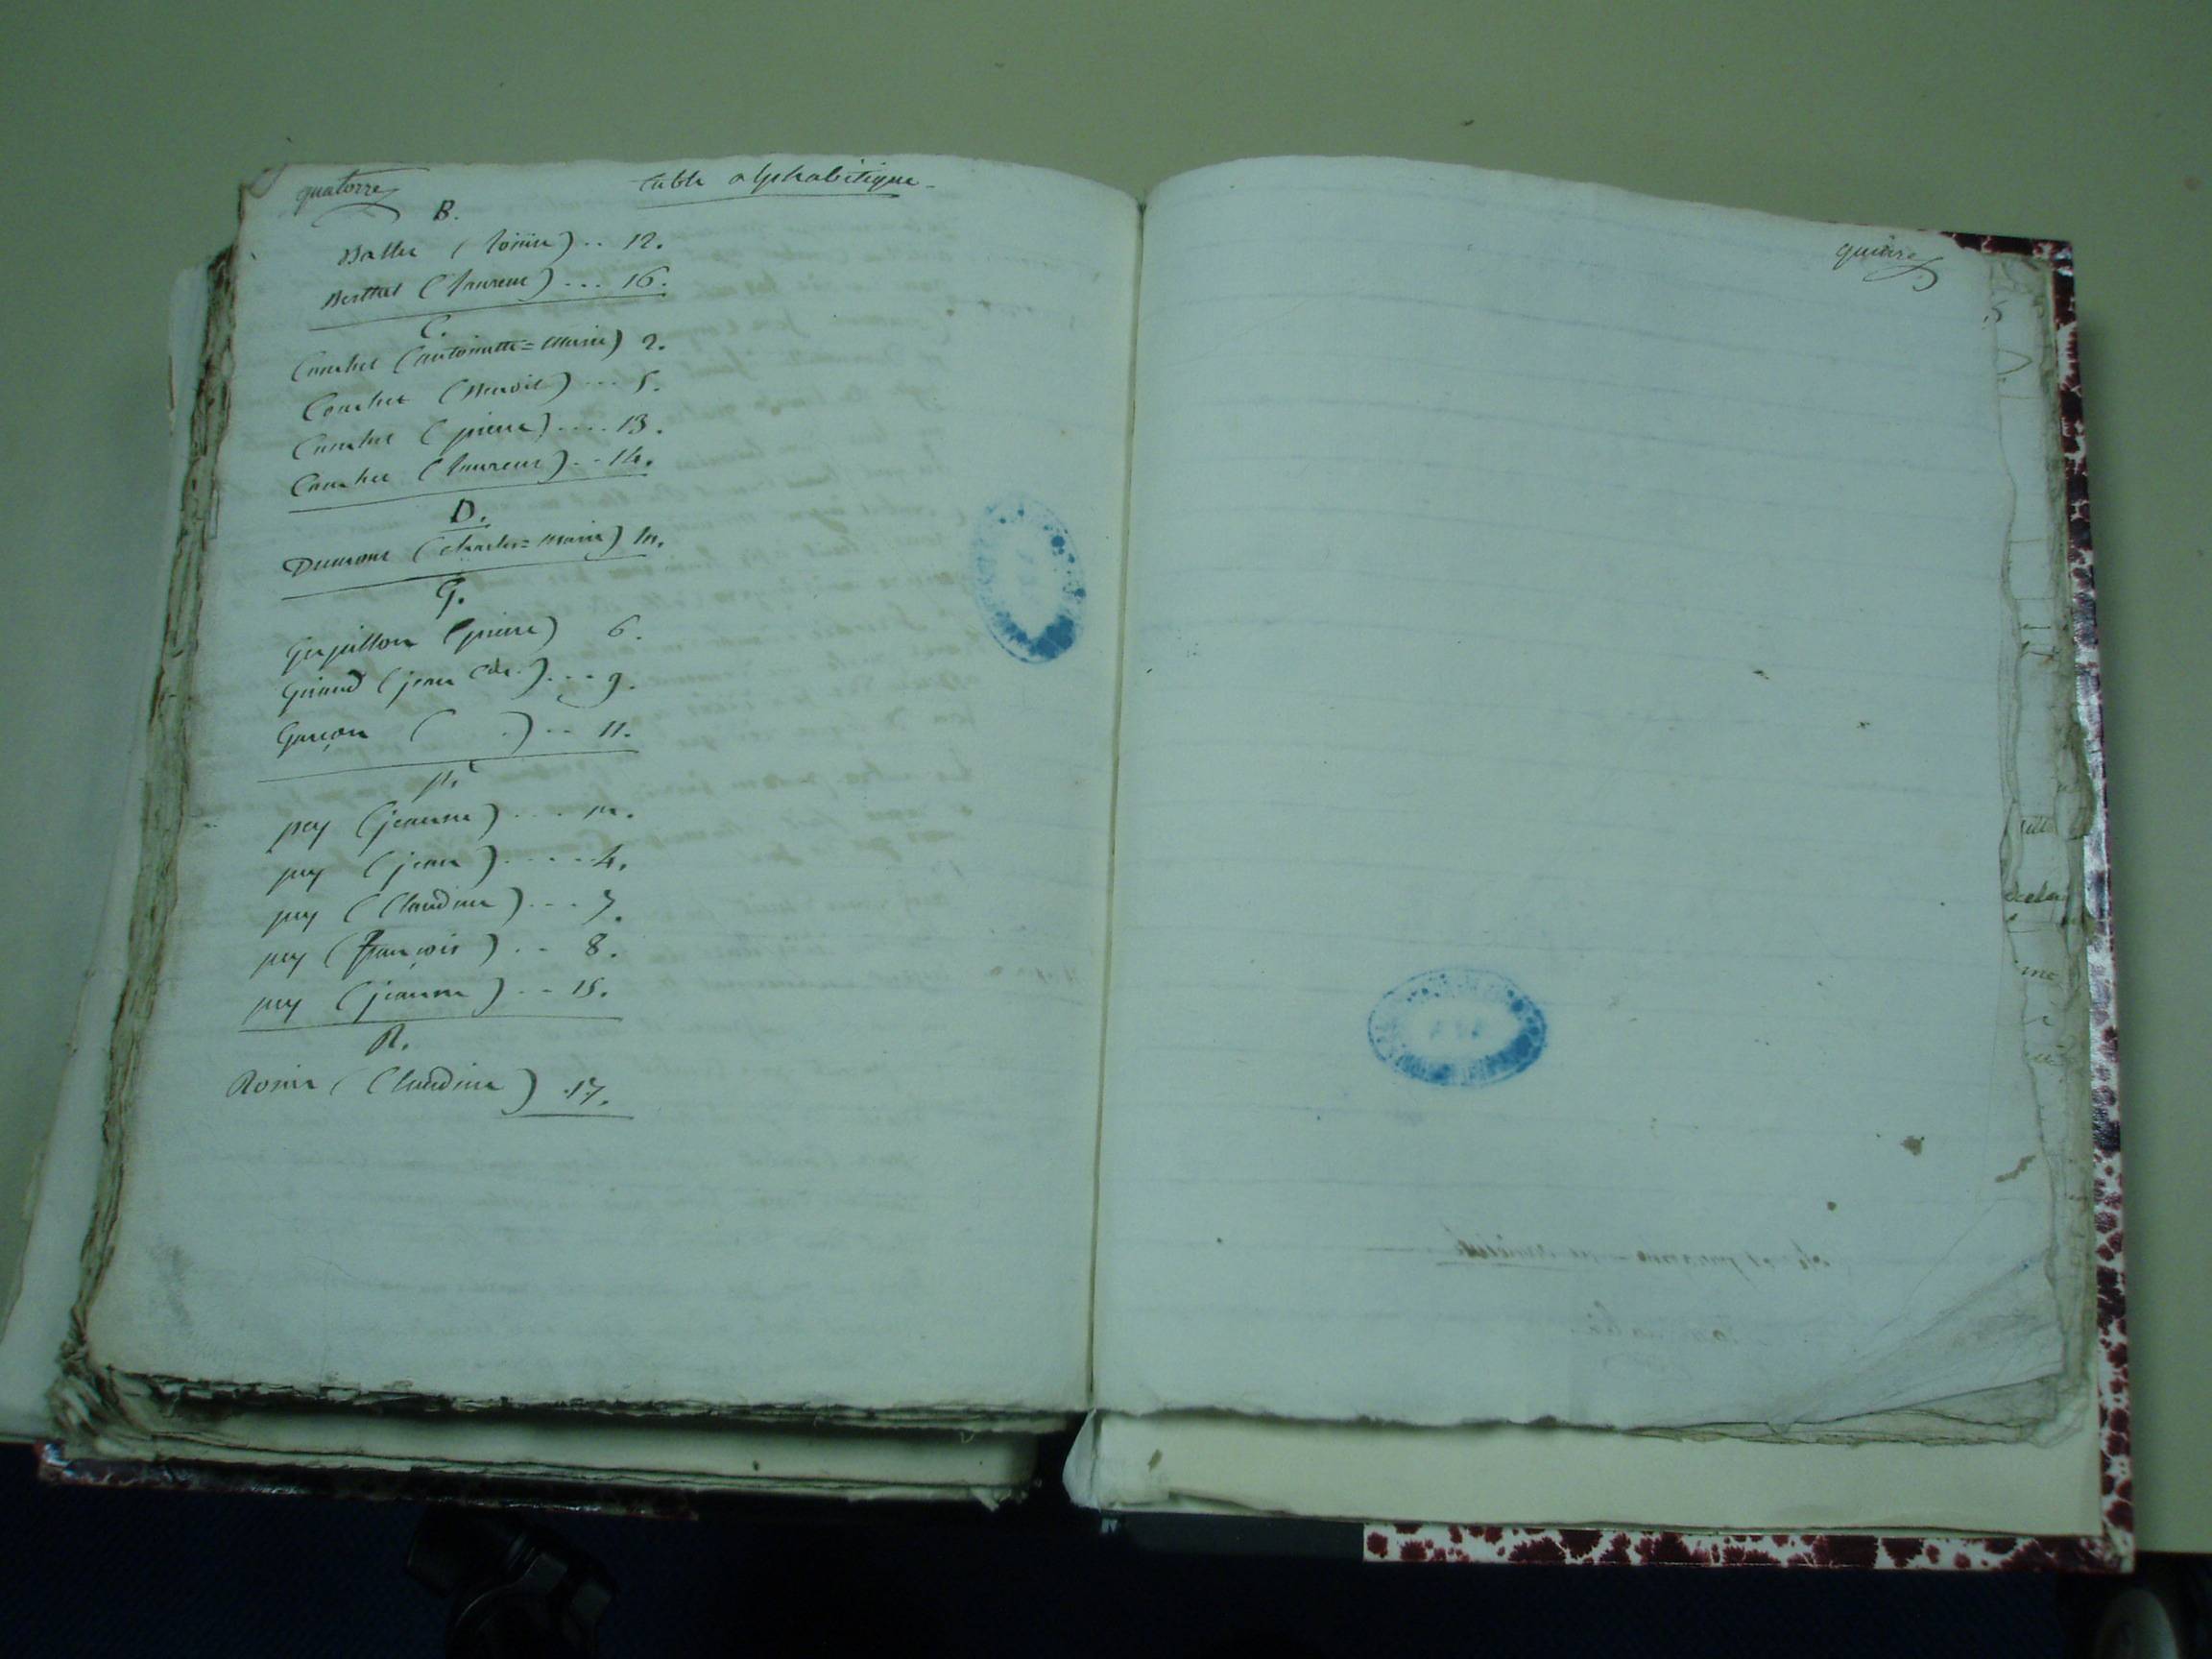 quatorze
table alphabétique
B.
Ballu (        ) .. 12.
Berthet (Laurent) ... 16.
C.
Couchet (antoinette=marie) 2.
Couchet (Benoit) ... 5.
Couchet (pierre) .... 13.
Couchet (laurent) .. 14.
D.
Dumont (Charles=marie) 10.
G.
(pierre) 6.
Giraud (jean Cde.) ... 9.
Garçon (        .) .. 11.
p.
pey (jeanne) ....
pey (jean) ..... 4.
pey (Claudine) ... 7.
pey (françois) .. 8.
pey (jeanne) .. 15.
R.
Rosier (Claudine) 17.
quinze